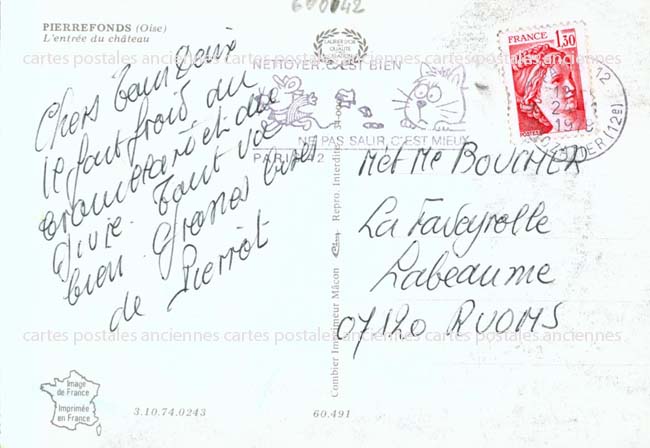 600042
PIERREFONDS (Oise)
L'entrée du château
Chers tous deux
le
froid du
et du
Givre. Tout va
bien. Grosses bises
de Pierrot
LAURIER D'OR
QUALITÉ
NETTOYER, C'EST BIEN
NE PAS SALIR, C'EST MIEUX
PARIS 12
FRANCE
1,30
POSTES
12
(12e)
Mr et Me BOUCHER
La Faveyrolle
Labeaume
07120 RUOMS
Combier Imprimeur Mâcon
Repro. Interdite
cartes postales anciennes cartes postales anciennes cartes postales anciennes
cartes postales anciennes cartes postales anciennes cartes postales anciennes
Image
de France
Imprimée
en France
3.10.74.0243
60.491